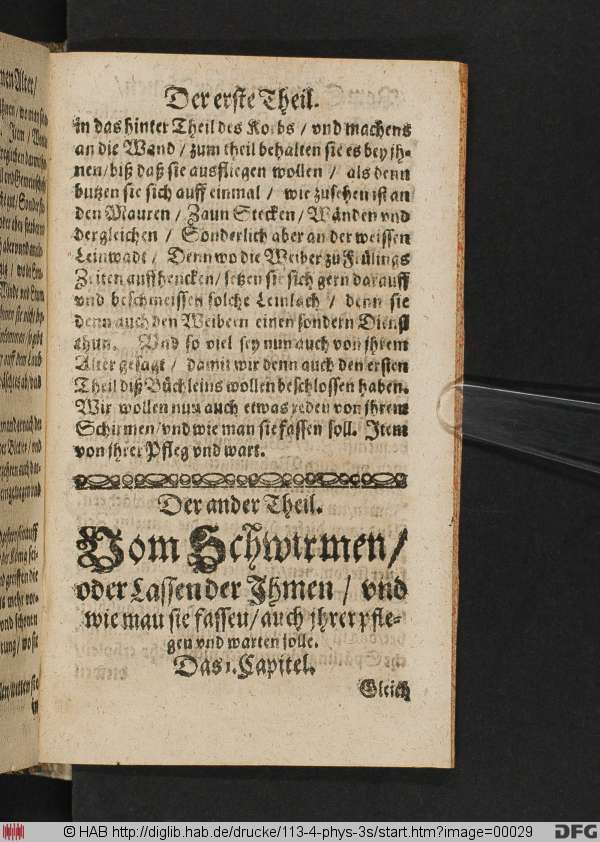 Der erste Theil.
in das hinter Theil des Korbs / vnd machens
an die Wand / zum theil behalten sie es bey jh-
nen / biß daß sie ausfliegen wollen / als denn
butzen sie sich auff einmal / wie zusehen ist an
den Mauren / Zaun Stecken / Wänden vnd
dergleichen / Sonderlich aber an der weissen
Leinwadt / Denn wo die Weiber zu Frülings
Zeiten auffhencken / setzen sie sich gern darauff
vnd beschmeissen solche Leinlach / denn sie
denn auch den Weibern einen sondern Dienst
thun. Vnd so viel sey nun auch von jhrem
Alter gesagt / damit wir denn auch den ersten
Theil diß Büchleins wollen beschlossen haben.
Wir wollen nun auch etwas reden von jhrem
Schirmen / vnd wie man sie fassen soll. Item
von jhrer Pfleg vnd wart.
Der ander Theil.
Vom Schwirmen /
oder Lassen der Jhmen / vnd
wie man sie fassen / auch jhrer pfle-
gen vnd warten solle.
Das 1. Capitel.
Gleich
© HAB http://diglib.hab.de/drucke/113-4-phys-3s/start.htm?image=00029
DFG